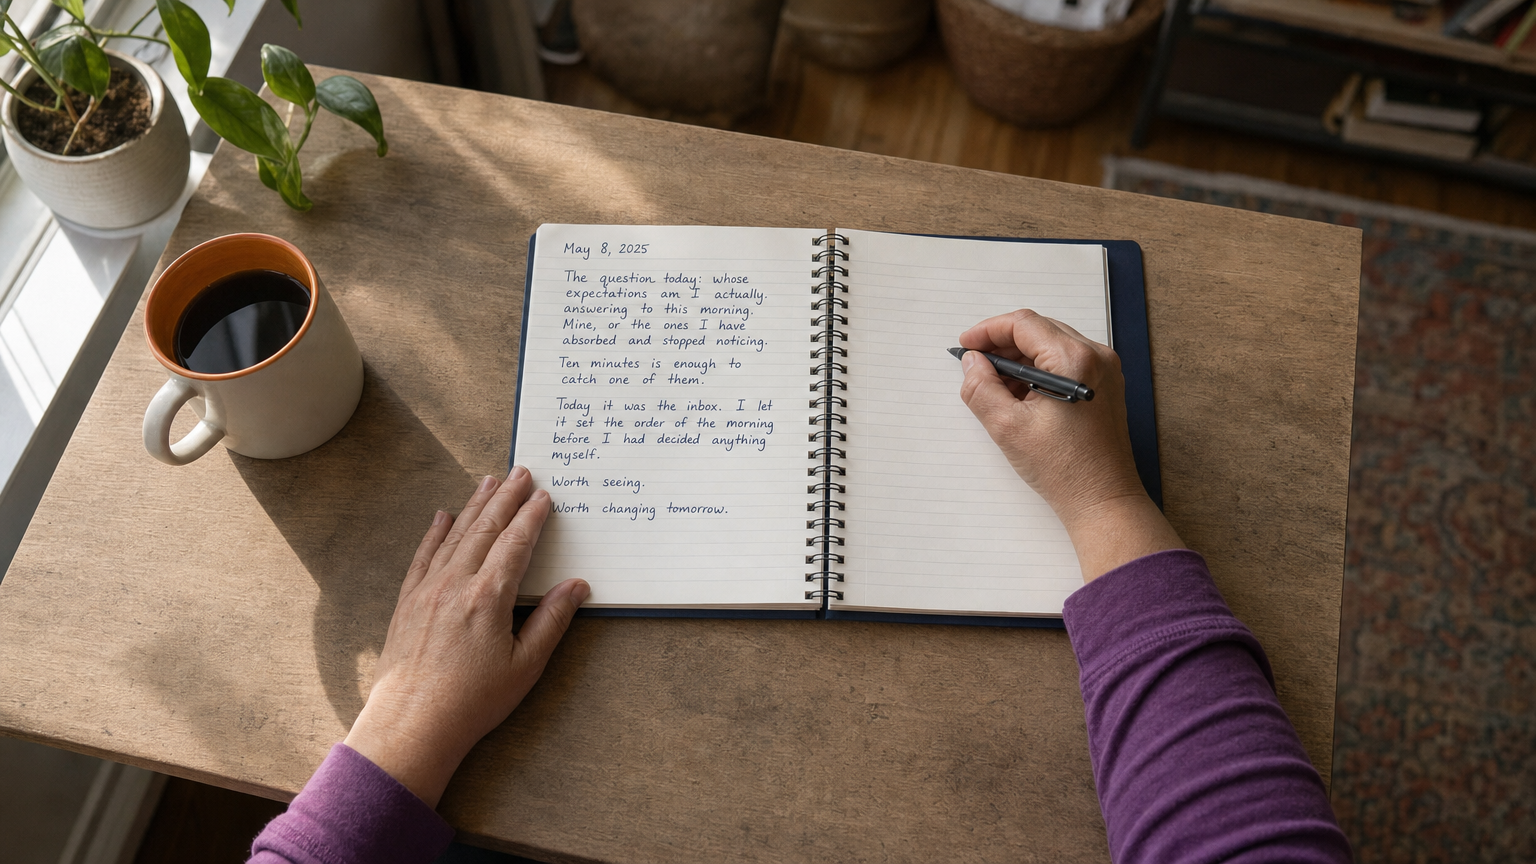 May 8, 2025
The question today: whose
expectations am I actually.
answering to this morning.
Mine, or the ones I have
absorbed and stopped noticing.
Ten minutes is enough to
catch one of them.
Today it was the inbox. I let
it set the order of the morning
before I had decided anything
myself.
Worth seeing.
Worth changing tomorrow.